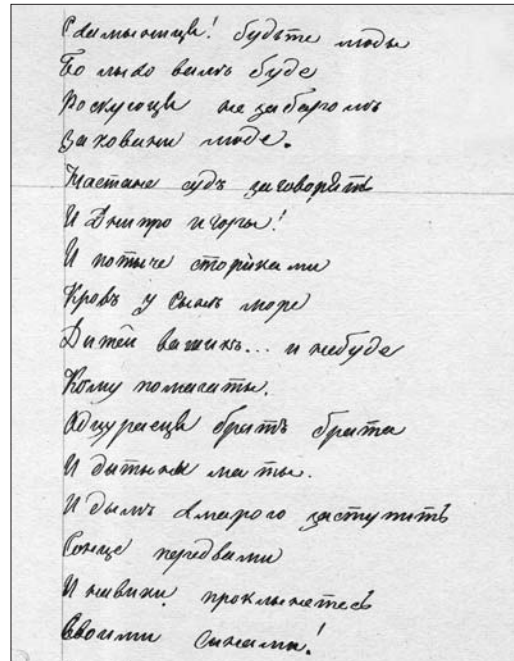 Схаменицця! будьте люды
Бо лыхо вамъ буде
Роскуюцця незабаромъ
Заковани люде.
Настане судъ заговорятъ
И Днипро и горы!
И потыче сториками
Кровъ у сынъ море
Дитей вашихъ... и небуде
Кому помагаты.
Одцураецця братъ брата
И дытыны маты.
И дымъ хмарого заступить
Сонце передвами
И навики проклынетесь
Своими сынамы!